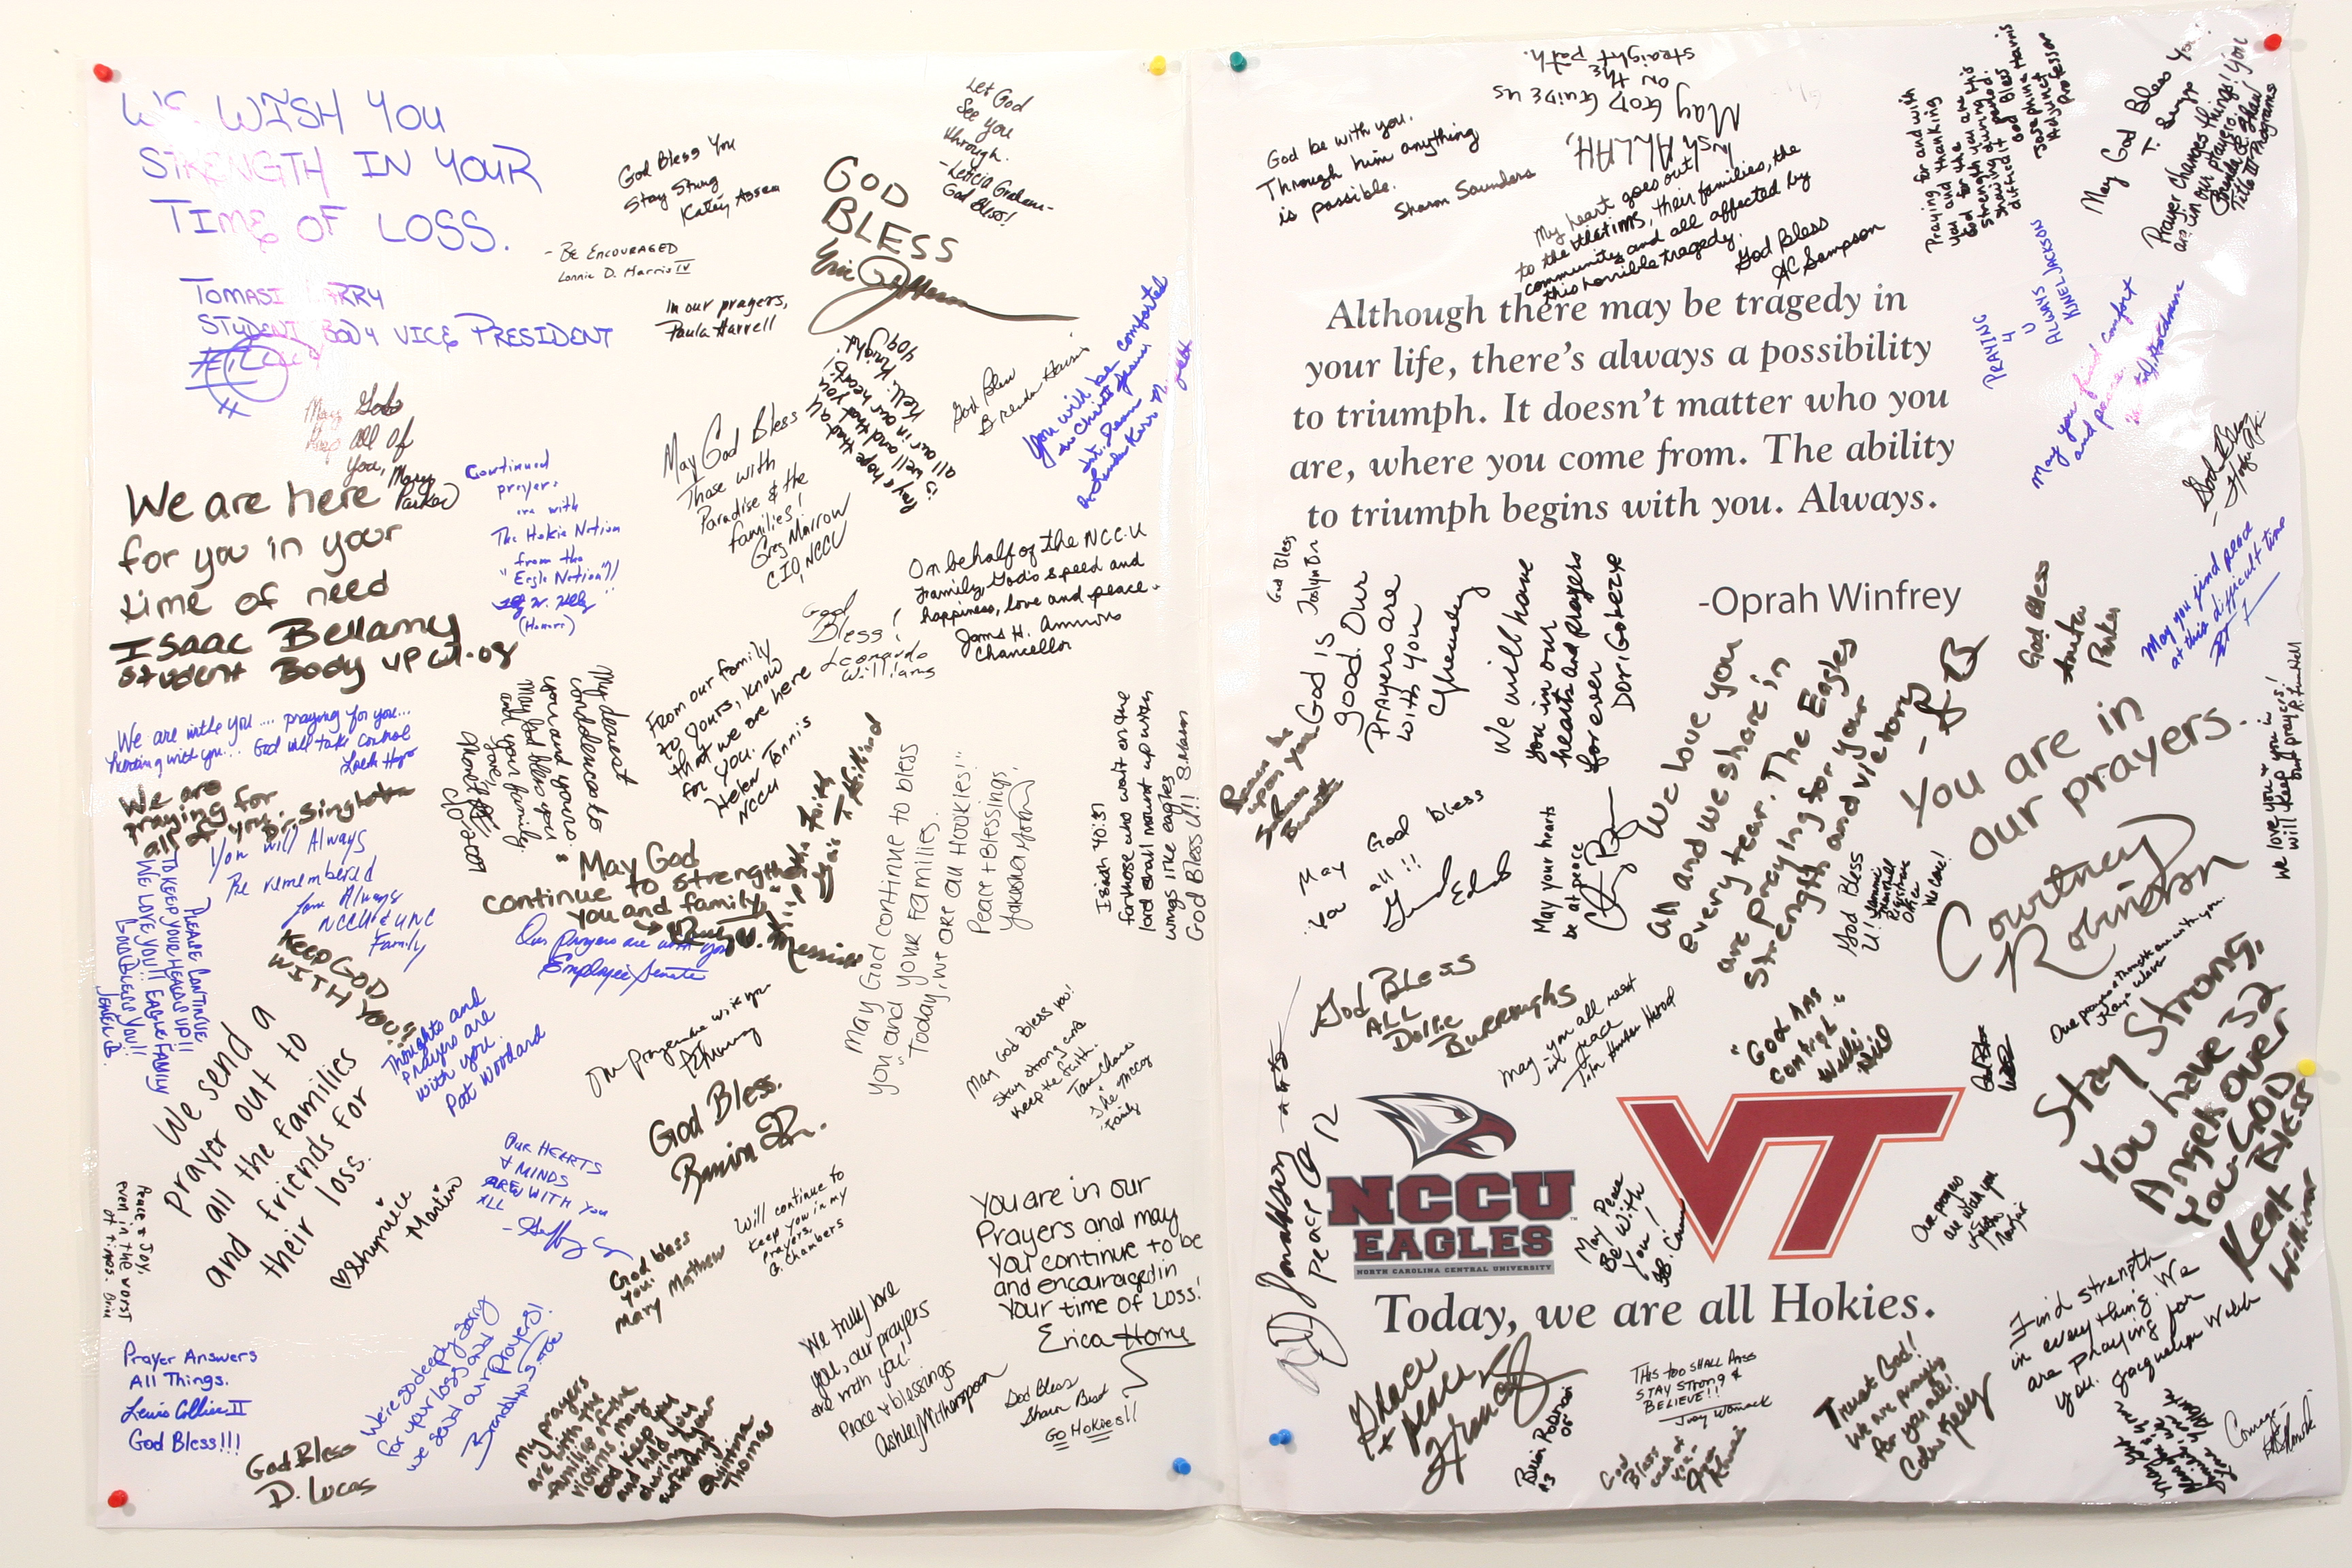 WE WISH YOU
STRENGTH IN YOUR
TIME OF LOSS.
TOMASI LARRY
STUDENT BODY VICE PRESIDENT
God Bless You
Stay Strong
- BE ENCOURAGED
Lonnie D. Harris IV
GOD
BLESS
Let God
See you
through.
- Leticia Graham -
God Bless!
In our prayers,
Paula Harrell
May God
Keep all of
you, Mary
Parker
We are here
for you in your
time of need
Isaac Bellamy
Student Body VP
Continued
prayers
are with
The Hokie Nation
from the
"Eagle Nation"!!
(Honors)
May God Bless
Those with
Paradise & the
families!
Greg Marrow
CIO, NCCU
Pray & hope that
all is well and that you
all are in our hearts!
God Bless
Brenda Harris
You will be comforted
in Christ Jesus
On behalf of the NCCU
family, God's speed and
happiness, love and peace.
James H. Ammons
Chancellor
God
Bless!
Leonardo
Williams
From our family
to yours, know
that we are here
for you.
Helen Tannis
NCCU
My dearest
condolences to
you and yours.
May God bless you
and your family.
We are with you.... praying for you...
hurting with you... God will take control
We are
praying for
all of you. Dr. Singleton
You will Always
Be remembered
Love Always
NCCU & UNC
Family
PLEASE CONTINUE
TO KEEP YOUR HEADS UP!!
WE LOVE YOU!! EAGLE FAMILY
GOD BLESS YOU!!
KEEP GOD
WITH YOU!!
"May God
continue to strengthen
you and family."
Our prayers are with you
Employee Senate
May God continue to bless
you and your families.
"Today, we are all Hookies!"
Peace & Blessings,
Isaiah 40:31
for those who wait on the
lord shall mount up with
wings like eagles
God Bless U!! S. Mason
Thoughts and
prayers are
with you.
Pat Woodard
We send a
prayer out to
all the families
and friends for
their loss.
Shymice
Martin
Our prayers are with you
God Bless.
May God Bless you!
Stay strong and
Keep the faith.
The McCoy
Family
OUR HEARTS
& MINDS
ARE WITH YOU
ALL
God bless
you!
Mary Mathew
Will continue to
keep you in my
prayers.
A. Chambers
You are in our
Prayers and may
you continue to be
and encouraged in
your time of Loss!
Erica Horne
Peace & Joy,
even in the worst
of times.
Prayer Answers
All Things.
Lewis Collier II
God Bless!!!
God Bless
D. Lucas
We're so deeply sorry
for your loss and
we send our prayers!
My prayers
are with the
families of the
victims. May
God keep you
and hold you
during your
suffering!
Quintina
Thomas
We truly love
you, our prayers
are with you!
Peace & blessings
Ashley Witherspoon
God Bless
Sharon Best
GO HOKIES!!
God be with you.
Through him anything
is possible.
Sharon Saunders
Insh ALLAH,
May God Guide us
on the
straight path.
My heart goes out
to the victims, their families, the
community and all affected by
this horrible tragedy.
God Bless
AC Sampson
Praying for and with
you and thanking
God for the
strength you are
showing during this
difficult period.
God Bless
Josephine Harris
Adjunct
Professor
May God Bless You!
Prayer changes things! You
are in our prayers.
Brenda R. Shaw
Title III Programs
PRAYING
4
U
ALWAYS
KUNEL JACKSON
May you find comfort
and peace.
Although there may be tragedy in
your life, there's always a possibility
to triumph. It doesn't matter who you
are, where you come from. The ability
to triumph begins with you. Always.
-Oprah Winfrey
God Bless
May you find peace
at this difficult time
God Bless
God is
good. Our
Prayers are
with you
We will have
you in our
hearts and prayers
forever
We love you
all and we share in
every tear. The Eagles
are praying for your
strength and victory
You are in
our prayers.
Courtney
Robinson
We love you &
will keep you in
our prayers!
May God bless
you all!!
May your hearts
be at peace
God Bless
U!
We care!
GOD BLESS
ALL
Dollie
Burroughs
May you all rest
in peace
"GOD HAS
CONTROL"
Our prayers & thoughts are with you.
Stay Strong,
You have 32
Angels over
You. GOD
BLESS
Kent
Williams
NCCU
EAGLES
NORTH CAROLINA CENTRAL UNIVERSITY
VT
May Peace
Be With
You!
Our prayers
are with you
Today, we are all Hokies.
Peace
Grace
& peace
THIS TOO SHALL PASS
STAY STRONG &
BELIEVE!!
Judy Womack
Trust God!
We are praying
for you all!
Find strength
in everything. We
are praying for
you. Jacquelyn Welch
God
Bless
each of
you